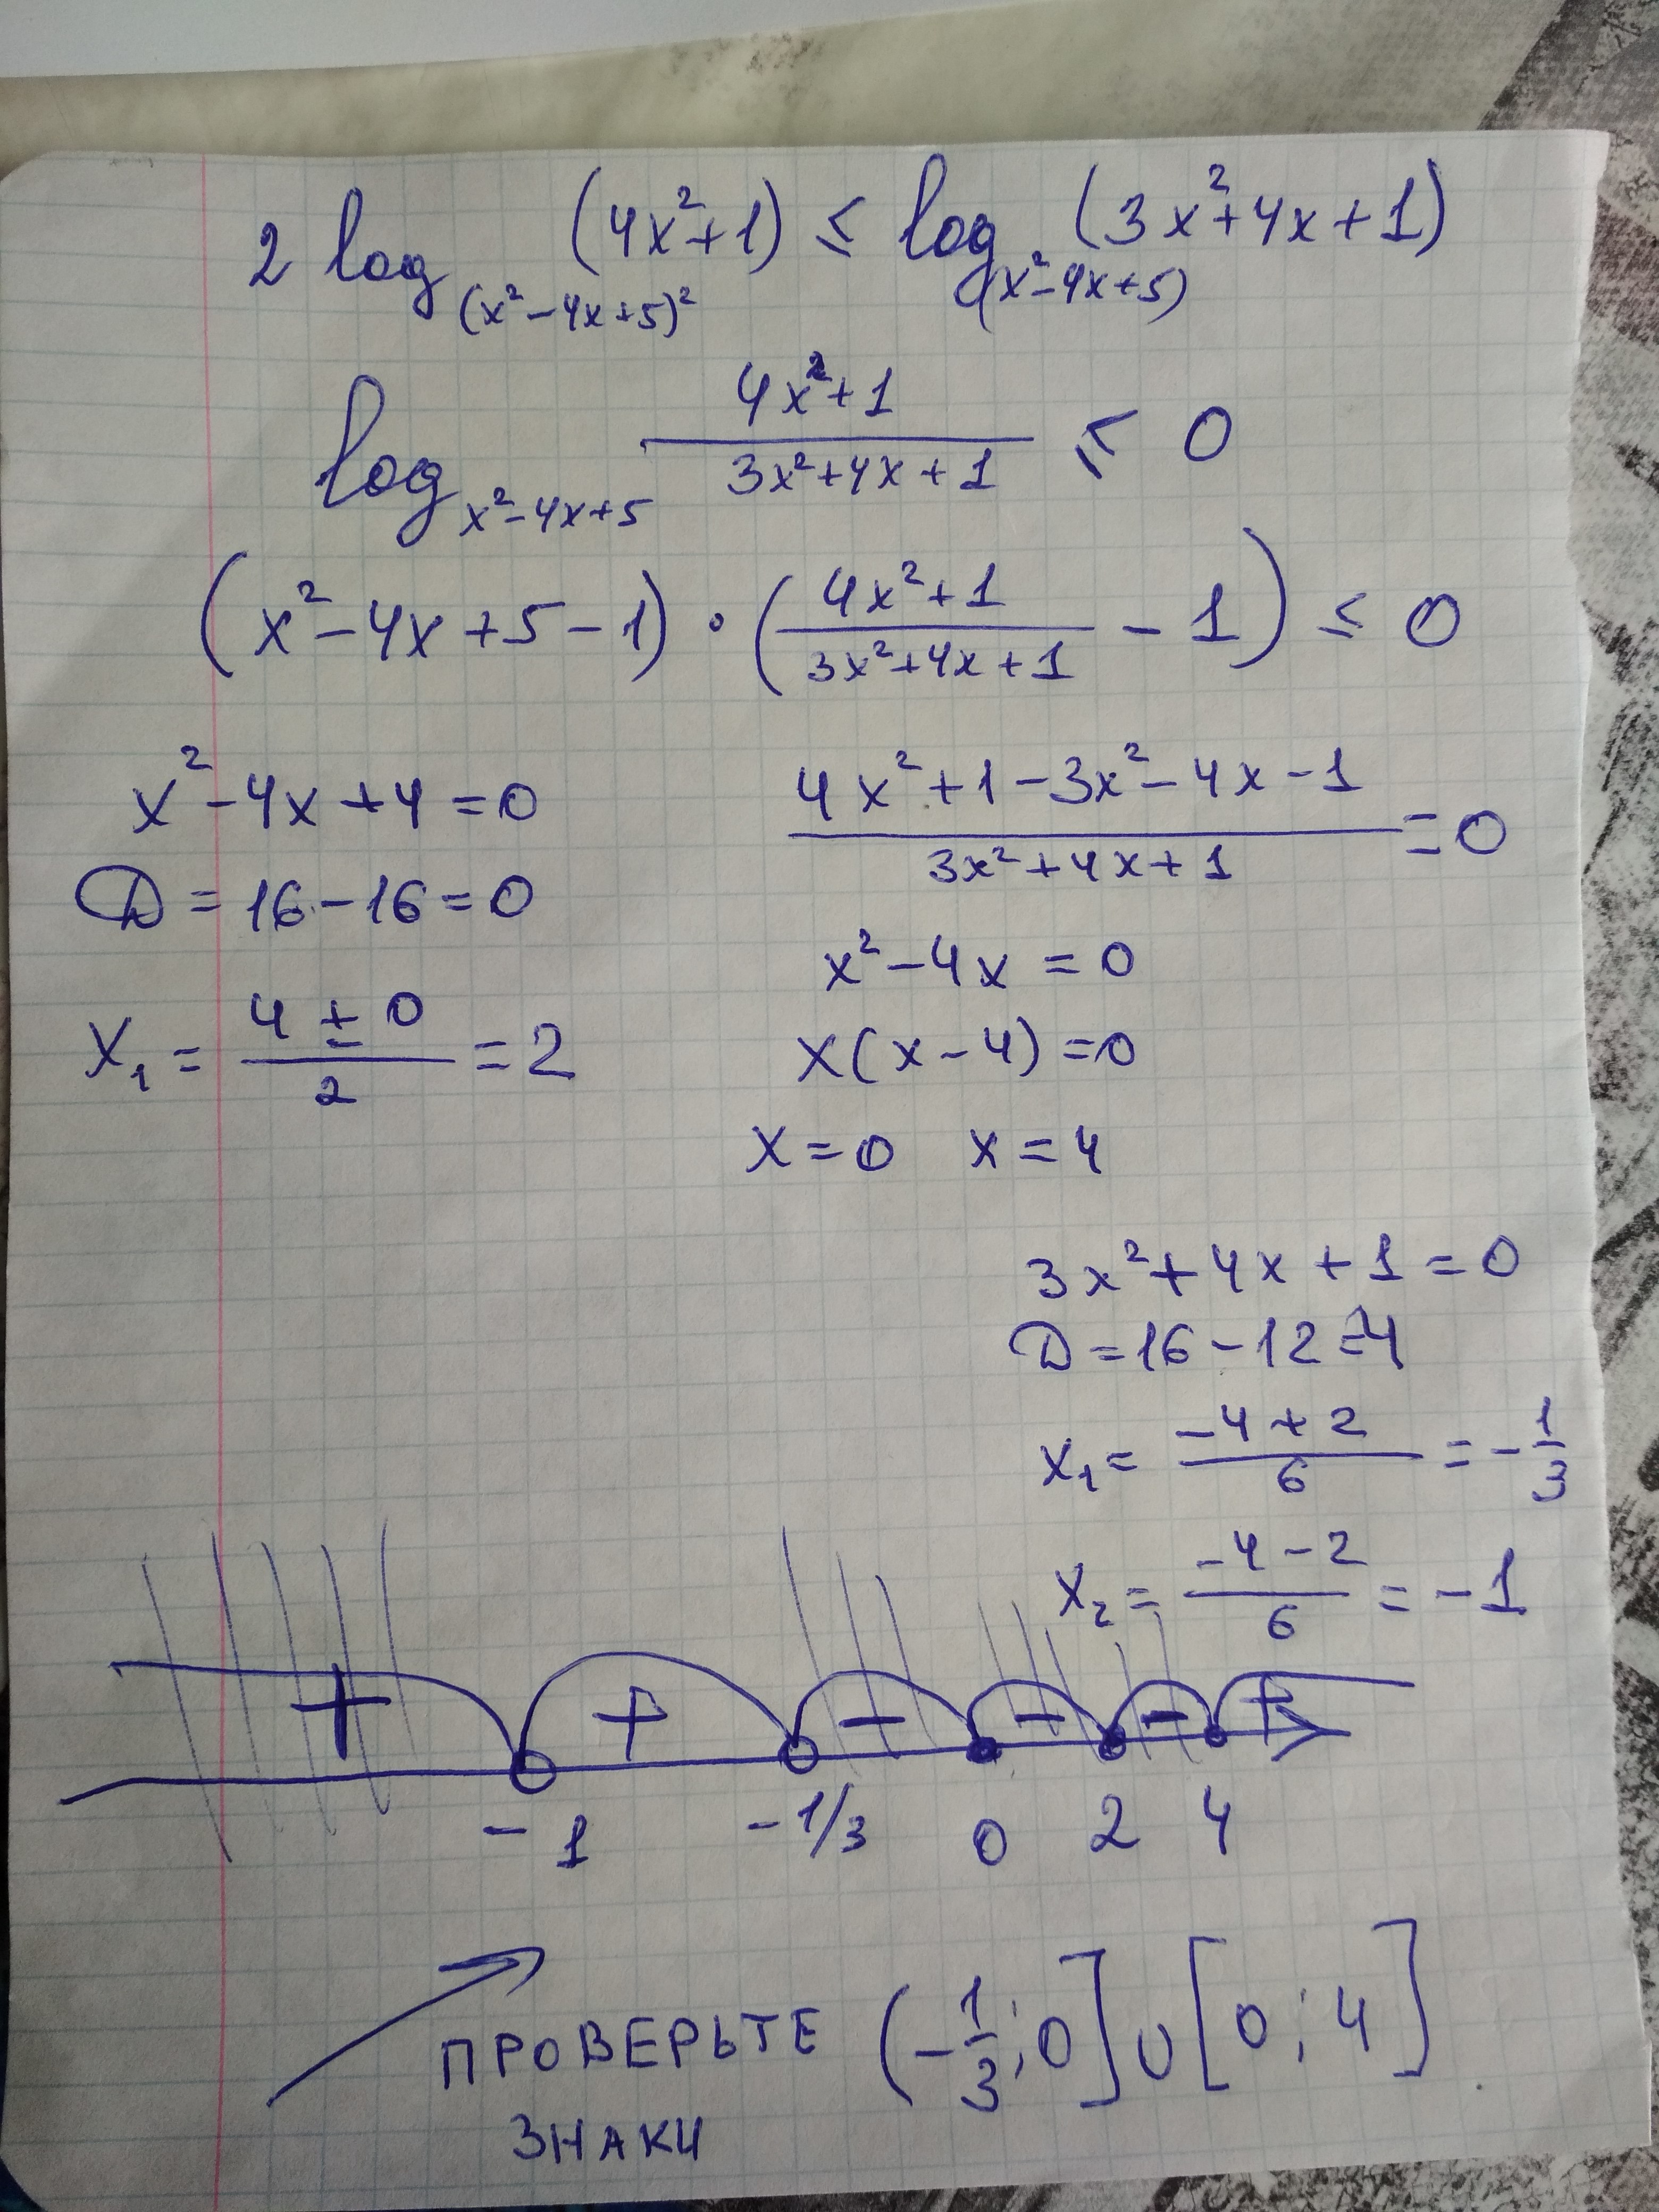 2 log_(x²-4x+5)² (4x²+1) ≤ log_(x²-4x+5) (3x²+4x+1)
log_x²-4x+5 (4x²+1)/(3x²+4x+1) ≤ 0
(x²-4x+5-1) · ((4x²+1)/(3x²+4x+1) - 1) ≤ 0
x²-4x+4=0
D=16-16=0
x₁ = (4±0)/2 = 2
(4x²+1-3x²-4x-1)/(3x²+4x+1) = 0
x²-4x=0
x(x-4)=0
x=0 x=4
3x²+4x+1=0
D=16-12=4
x₁ = (-4+2)/6 = -1/3
x₂ = (-4-2)/6 = -1
+ + - - - +
-1 -1/3 0 2 4
ПРОВЕРЬТЕ (-1/3; 0] ∪ [0; 4]
ЗНАКИ